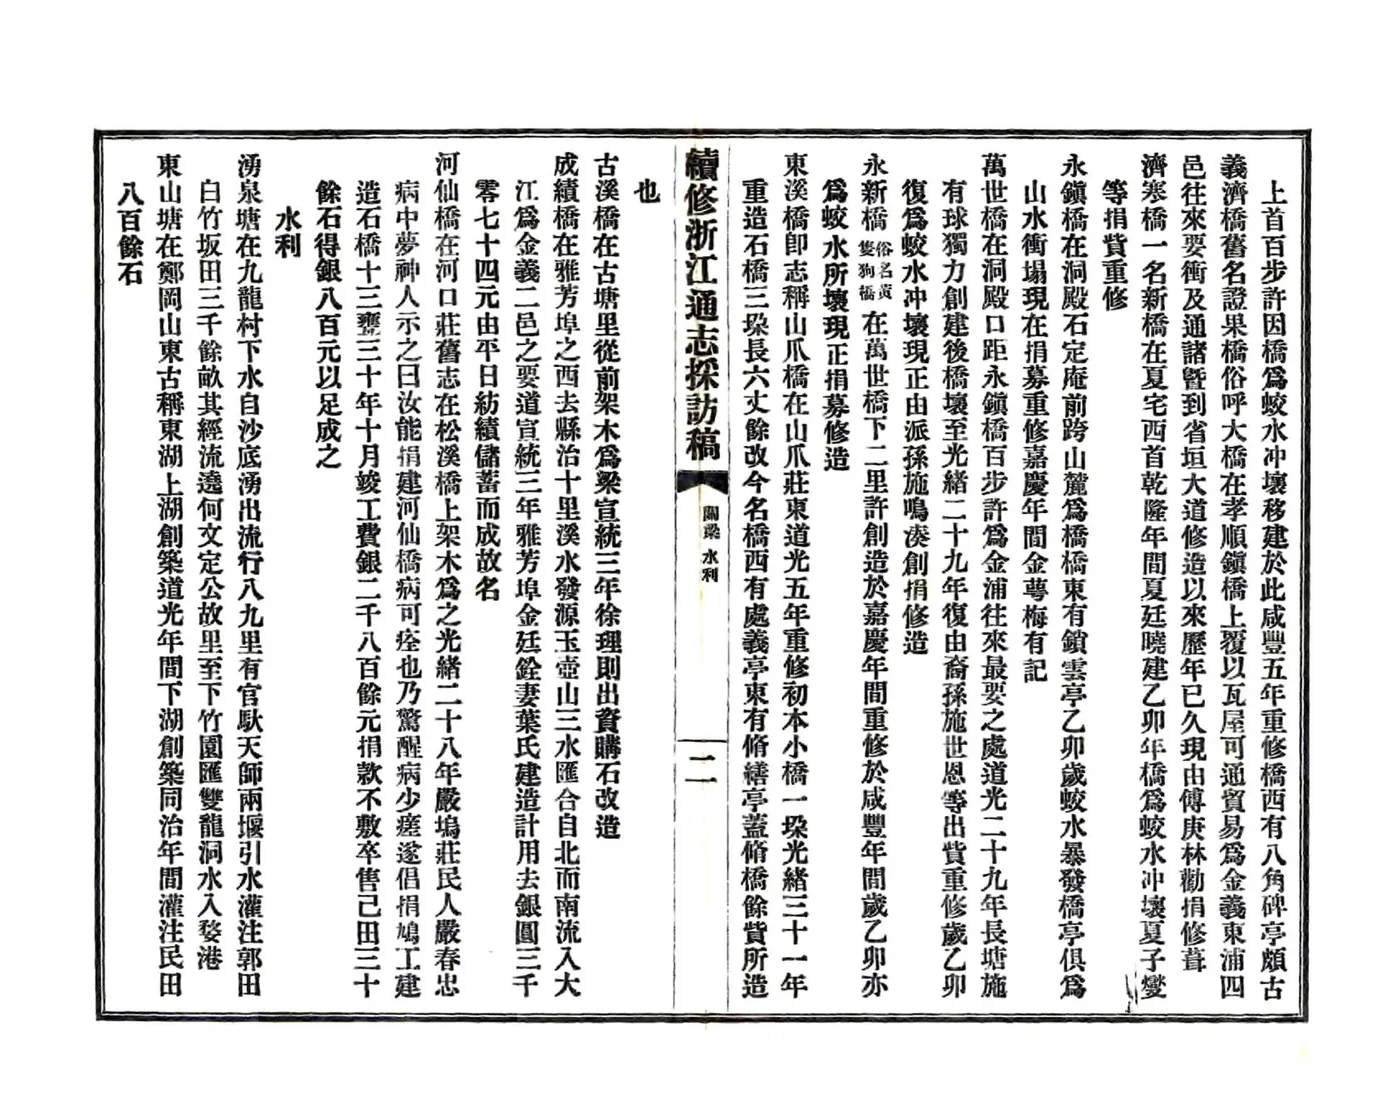 上首百步許因橋爲蛟水冲壞移建於此咸豐五年重修橋西有八角碑亭頗古
義濟橋舊名證果橋俗呼大橋在孝順鎭橋上覆以瓦屋可通貿易爲金義東浦四
邑往來要衝及通諸曁到省垣大道修造以來歷年已久現由傅庚林勸捐修葺
濟寒橋一名新橋在夏宅西首乾隆年間夏廷曉建乙卯年橋爲蛟水冲壞夏子燮
等捐貲重修
永鎭橋在洞殿石定庵前跨山麓爲橋橋東有鎖雲亭乙卯歲蛟水暴發橋亭俱爲
山水衝塌現在捐募重修嘉慶年間金蕚梅有記
萬世橋在洞殿口距永鎭橋百步許爲金浦往來最要之處道光二十九年長塘施
有球獨力創建後橋壞至光緒二十九年復由裔孫施世恩等出貲重修歲乙卯
復爲蛟水冲壞現正由派孫施鳴湊創捐修造
永新橋俗名黃雙狗橋在萬世橋下二里許創造於嘉慶年間重修於咸豐年間歲乙卯亦
爲蛟水所壞現正捐募修造
東溪橋卽志稱山爪橋在山爪莊東道光五年重修初本小橋一垜光緒三十一年
重造石橋三垜長六丈餘改今名橋西有處義亭東有脩繕亭蓋脩橋餘貲所造
續修浙江通志採訪稿
關梁 水利
二
也
古溪橋在古塘里從前架木爲梁宣統三年徐理則出資購石改造
成績橋在雅芳埠之西去縣治十里溪水發源玉壺山三水匯合自北而南流入大
江爲金義二邑之要道宣統三年雅芳埠金廷銓妻葉氏建造計用去銀圓三千
零七十四元由平日紡績儲蓄而成故名
河仙橋在河口莊舊志在松溪橋上架木爲之光緒二十八年嚴塢莊民人嚴春忠
病中夢神人示之曰汝能捐建河仙橋病可痊也乃驚醒病少瘥遂倡捐鳩工建
造石橋十三甕三十年十月竣工費銀二千八百餘元捐款不敷卒售己田三十
餘石得銀八百元以足成之
水利
湧泉塘在九龍村下水自沙底湧出流行八九里有官馱天師兩堰引水灌注郭田
白竹坂田三千餘畝其經流遶何文定公故里至下竹園匯雙龍洞水入婺港
東山塘在鄭岡山東古稱東湖上湖創築道光年間下湖創築同治年間灌注民田
八百餘石